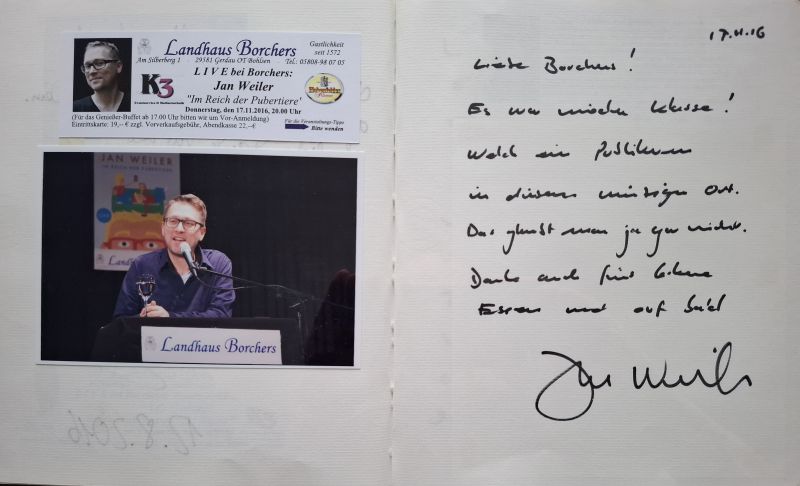 Landhaus Borchers
Gastlichkeit
seit 1572
Am Silberberg 1 - 29581 Gerdau OT Bohlsen - Tel.: 05808-98 07 05
K3
LIVE bei Borchers:
Jan Weiler
"Im Reich der Pubertiere'
Donnerstag, den 17.11.2016, 20.00 Uhr
(Für das Genießer-Buffet ab 17.00 Uhr bitten wir um Vor-Anmeldung)
Eintrittskarte: 19,-- € zzgl. Vorverkaufsgebühr, Abendkasse 22,--€
Für die Veranstaltungs-Tipps
Bitte wenden
JAN WEILER
IM REICH DER PUBERTIERE
Landhaus Borchers
12.8.2016
17.11.16
Liebe Borchers!
Es war wieder klasse!
Welch ein Publikum
in diesem winzigen Ort.
Das glaubt man ja gar nicht.
Danke auch fürs leckere
Essen und auf bald
Jan Weiler